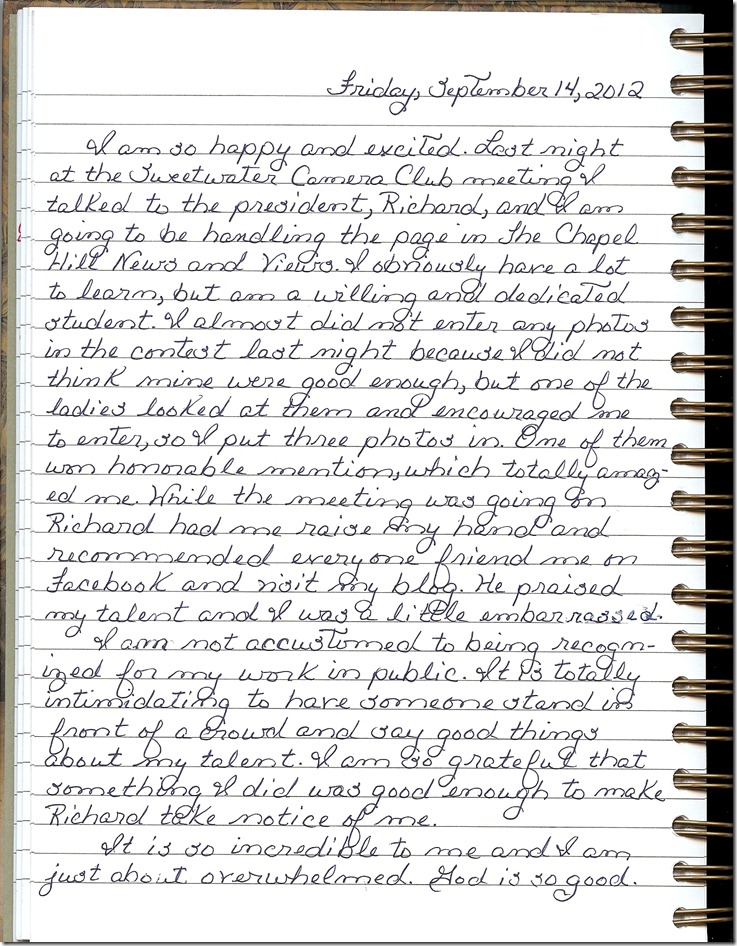 Friday, September 14, 2012
I am so happy and excited. Last night
at the Sweetwater Camera Club meeting I
talked to the president, Richard, and I am
going to be handling the page in The Chapel
Hill News and Views. I obviously have a lot
to learn, but am a willing and dedicated
student. I almost did not enter any photos
in the contest last night because I did not
think mine were good enough, but one of the
ladies looked at them and encouraged me
to enter, so I put three photos in. One of them
won honorable mention, which totally amaz-
ed me. While the meeting was going on
Richard had me raise my hand and
recommended everyone friend me on
Facebook and visit my blog. He praised
my talent and I was a little embarrassed.
I am not accustomed to being recogn-
ized for my work in public. It is totally
intimidating to have someone stand in
front of a crowd and say good things
about my talent. I am so grateful that
something I did was good enough to make
Richard take notice of me.
It is so incredible to me and I am
just about overwhelmed. God is so good.